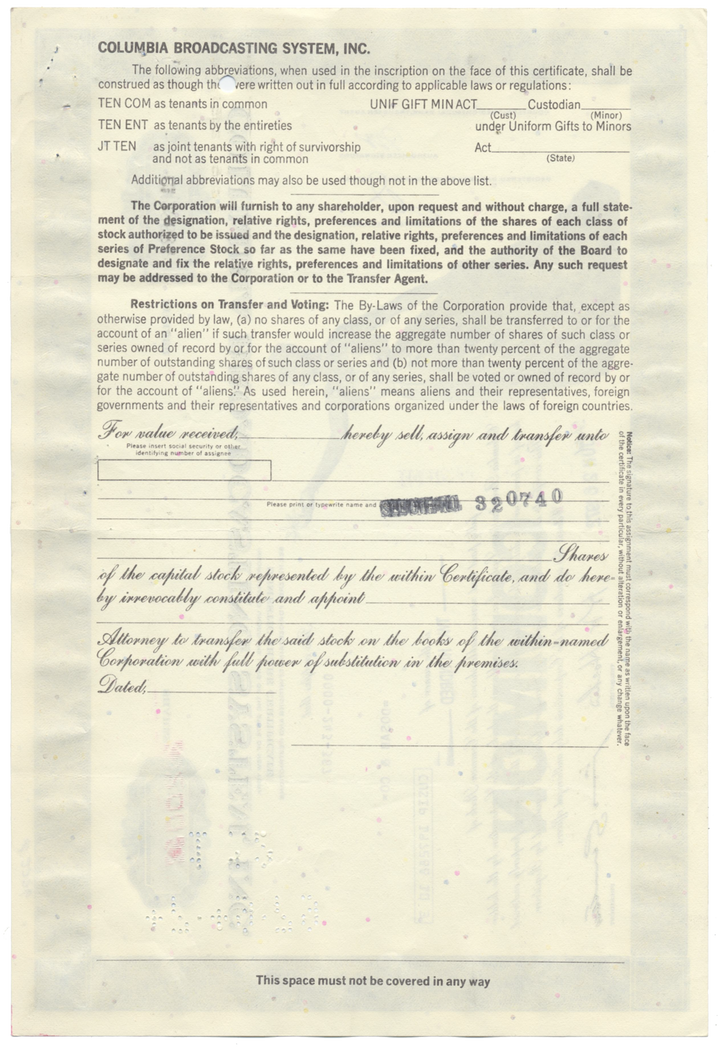 COLUMBIA BROADCASTING SYSTEM, INC.
The following abbreviations, when used in the inscription on the face of this certificate, shall be
construed as though th were written out in full according to applicable laws or regulations:
TEN COM as tenants in common UNIF GIFT MIN ACT______Custodian______
(Cust) (Minor)
TEN ENT as tenants by the entireties under Uniform Gifts to Minors
JT TEN as joint tenants with right of survivorship Act______
and not as tenants in common (State)
Additional abbreviations may also be used though not in the above list.
The Corporation will furnish to any shareholder, upon request and without charge, a full state-
ment of the designation, relative rights, preferences and limitations of the shares of each class of
stock authorized to be issued and the designation, relative rights, preferences and limitations of each
series of Preference Stock so far as the same have been fixed, and the authority of the Board to
designate and fix the relative rights, preferences and limitations of other series. Any such request
may be addressed to the Corporation or to the Transfer Agent.
Restrictions on Transfer and Voting: The By-Laws of the Corporation provide that, except as
otherwise provided by law, (a) no shares of any class, or of any series, shall be transferred to or for the
account of an "alien" if such transfer would increase the aggregate number of shares of such class or
series owned of record by or for the account of "aliens" to more than twenty percent of the aggregate
number of outstanding shares of such class or series and (b) not more than twenty percent of the aggre-
gate number of outstanding shares of any class, or of any series, shall be voted or owned of record by or
for the account of "aliens." As used herein, "aliens" means aliens and their representatives, foreign
governments and their representatives and corporations organized under the laws of foreign countries.
For value received,______hereby sell, assign and transfer unto
Please insert social security or other
identifying number of assignee
Please print or typewrite name and
320740
Shares
of the capital stock represented by the within Certificate, and do here-
by irrevocably constitute and appoint
Attorney to transfer the said stock on the books of the within-named
Corporation with full power of substitution in the premises.
Dated,
Notice: The signature to this assignment must correspond with the name as written upon the face
of the certificate in every particular, without alteration or enlargement, or any change whatever.
This space must not be covered in any way